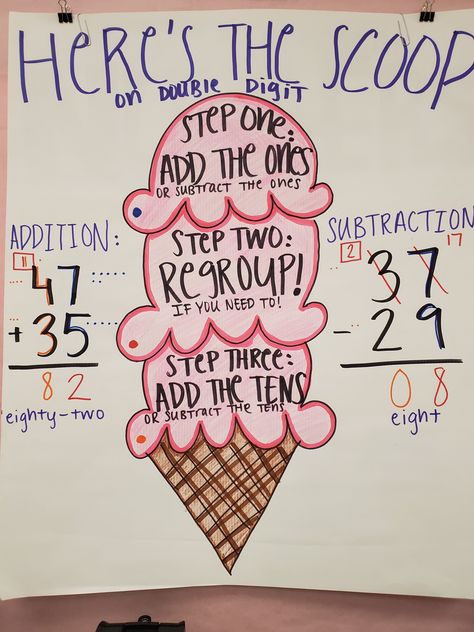 HERE'S THE SCOOP
ON DOUBLE DIGIT
STEP ONE:
ADD THE ONES
OR SUBTRACT THE ONES
STEP TWO:
REGROUP!
IF YOU NEED TO!
STEP THREE:
ADD THE TENS
OR SUBTRACT THE TENS
ADDITION:
47
+35
82
eighty-two
SUBTRACTION
2 17
37
-29
08
eight